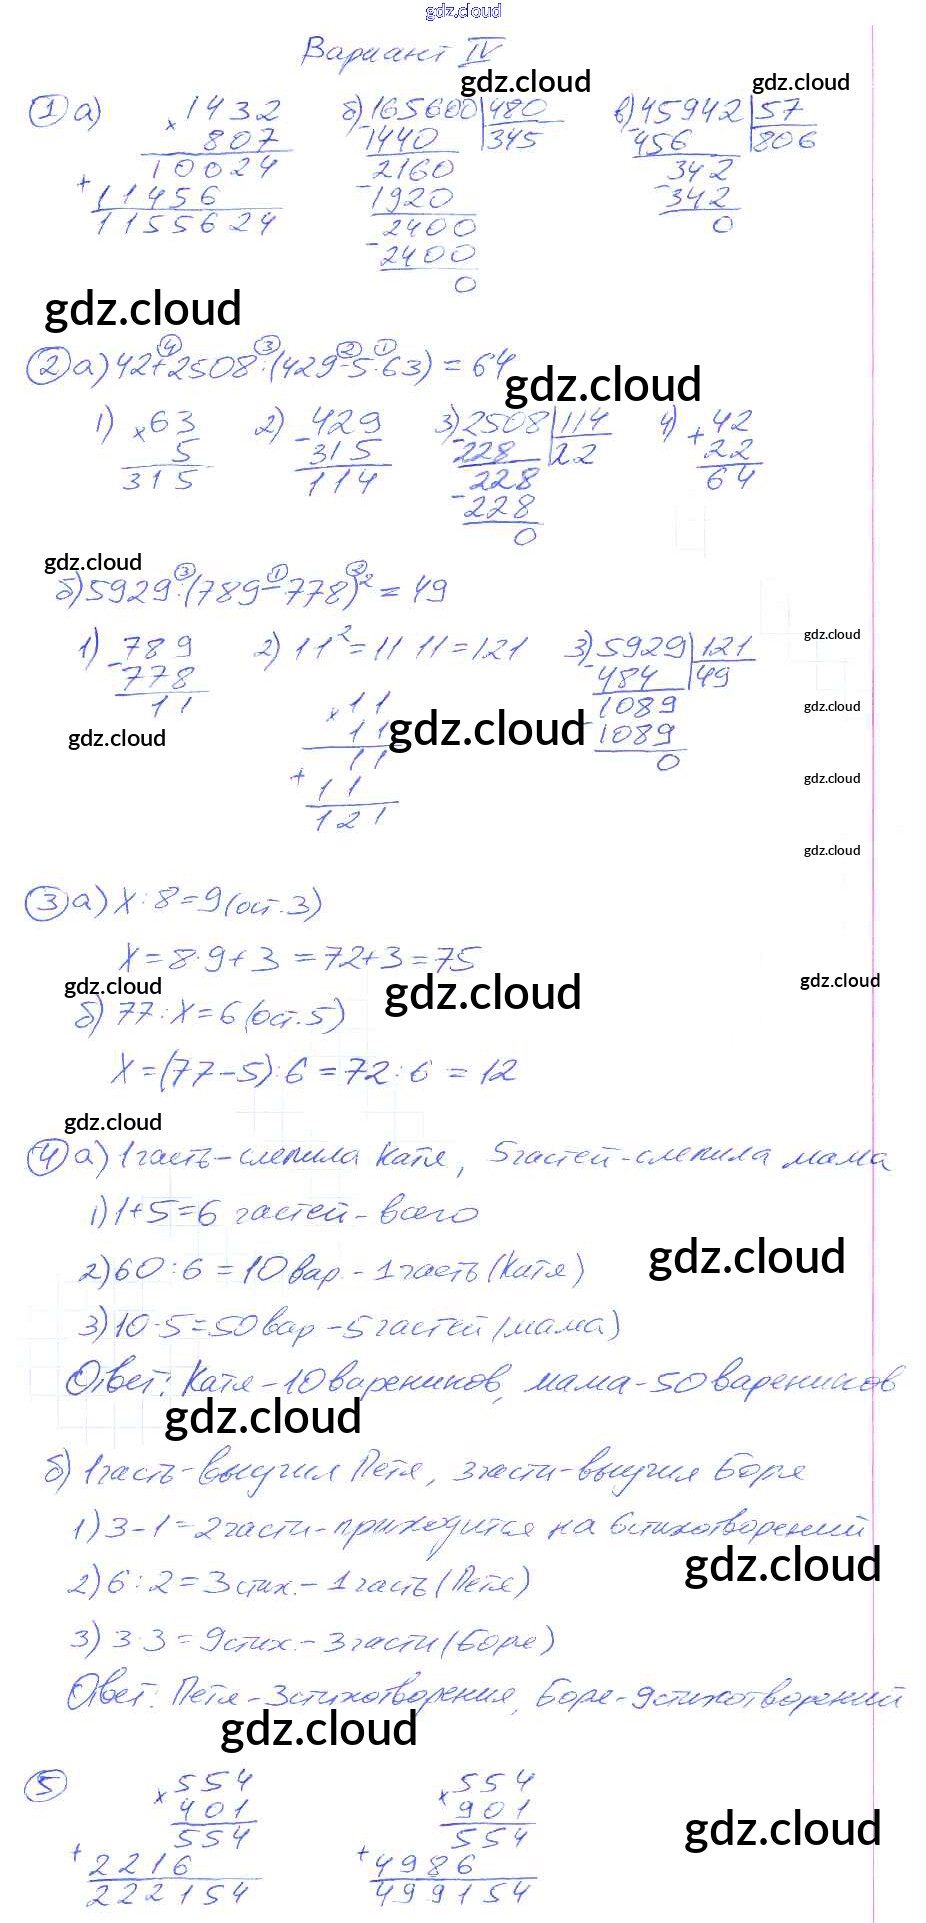 gdz.cloud
Вариант IV
gdz.cloud
gdz.cloud
1 а) × 1432
807
10024
+ 11456
1155624
б) 165600 | 480
- 1440 | 345
2160
- 1920
2400
- 2400
0
в) 45942 | 57
- 456 | 806
342
- 342
0
gdz.cloud
2 а) 42+2508:(429-5·63) = 64
4 3 2 1
gdz.cloud
1) × 63
5
315
2) - 429
315
114
3) 2508 | 114
- 228 | 22
228
- 228
0
4) + 42
22
64
gdz.cloud
б) 5929:(789-778)² = 49
3 1 2
gdz.cloud
1) - 789
778
11
2) 11² = 11 11 = 121
× 11
11
11
+ 11
121
3) 5929 | 121
- 484 | 49
1089
- 1089
0
gdz.cloud
gdz.cloud
gdz.cloud
gdz.cloud
gdz.cloud
3 а) X:8=9(ост.3)
X=8·9+3=72+3=75
gdz.cloud
gdz.cloud
gdz.cloud
б) 77:X=6(ост.5)
X=(77-5):6=72:6=12
gdz.cloud
4 а) 1часть-слепила Катя, 5частей-слепила мама
1) 1+5=6 частей-всего
gdz.cloud
2) 60:6=10вар.-1часть(Катя)
3) 10·5=50вар-5частей(мама)
Ответ: Катя-10вареников, мама-50вареников
gdz.cloud
б) 1часть-выучил Петя, 3части-выучил Боря
1) 3-1=2части-приходится на 6стихотворений
gdz.cloud
2) 6:2=3стих.-1часть(Петя)
3) 3·3=9стих.-3части(Боре)
Ответ: Петя-3стихотворения, Боре-9стихотворений
gdz.cloud
5 × 554
401
554
+ 2216
222154
× 554
901
554
+ 4986
499154
gdz.cloud